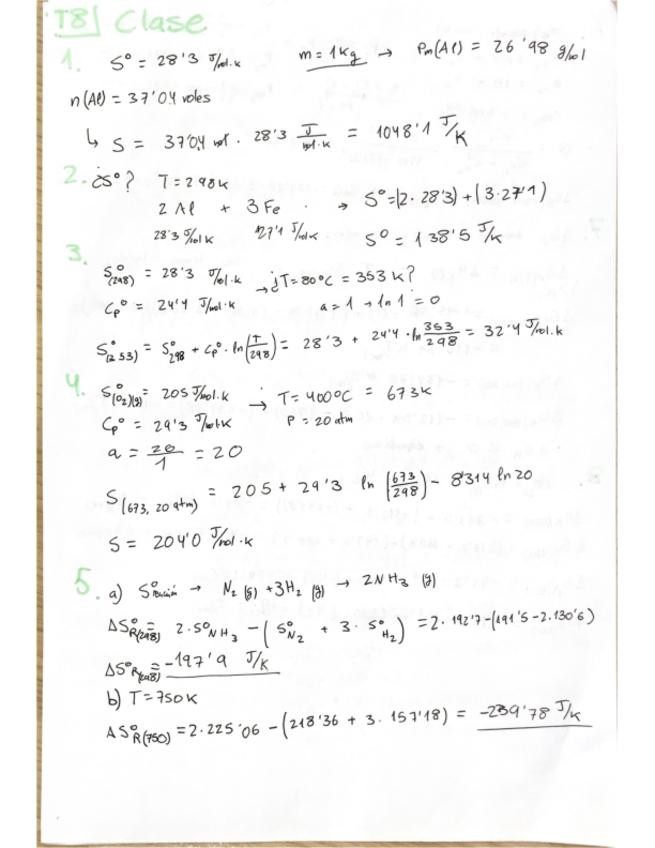 T8 Clase
1. S° = 28'3 J/mol.k m = 1Kg → Pm(Al) = 26'98 g/mol
n(Al) = 37'04 moles
↳ S = 37'04 mol · 28'3 J/mol·k = 1048'1 J/K
2. ¿S°? T = 298K
2 Al + 3 Fe → S° = (2 · 28'3) + (3·27'1)
28'3 J/mol K 27'1 J/mol K S° = 138'5 J/K
3.
S°(298) = 28'3 J/mol·k → ¿T = 80°C = 353 K?
Cp° = 24'4 J/mol·k a = 1 → ln 1 = 0
S°(253) = S°298 + Cp° · ln(T/298) = 28'3 + 24'4 · ln 353/298 = 32'4 J/mol.k
4. S°(O2)(g) = 205 J/mol.k → T = 400°C = 673K
Cp° = 29'3 J/mol·k P = 20 atm
a = 20/1 = 20
S(673, 20 atm) = 205 + 29'3 ln (673/298) - 8'314 ln 20
S = 204'0 J/mol·k
5. a) → N2 (g) + 3H2 (g) → 2NH3 (g)
ΔS°R(298) = 2·S°NH3 - (S°N2 + 3·S°H2) = 2·192'7-(191'5-2.130'6)
ΔS°R(298) = -197'9 J/K
b) T = 750K
ΔS°R(750) = 2·225'06 - (218'36 + 3·157'18) = -239'78 J/K